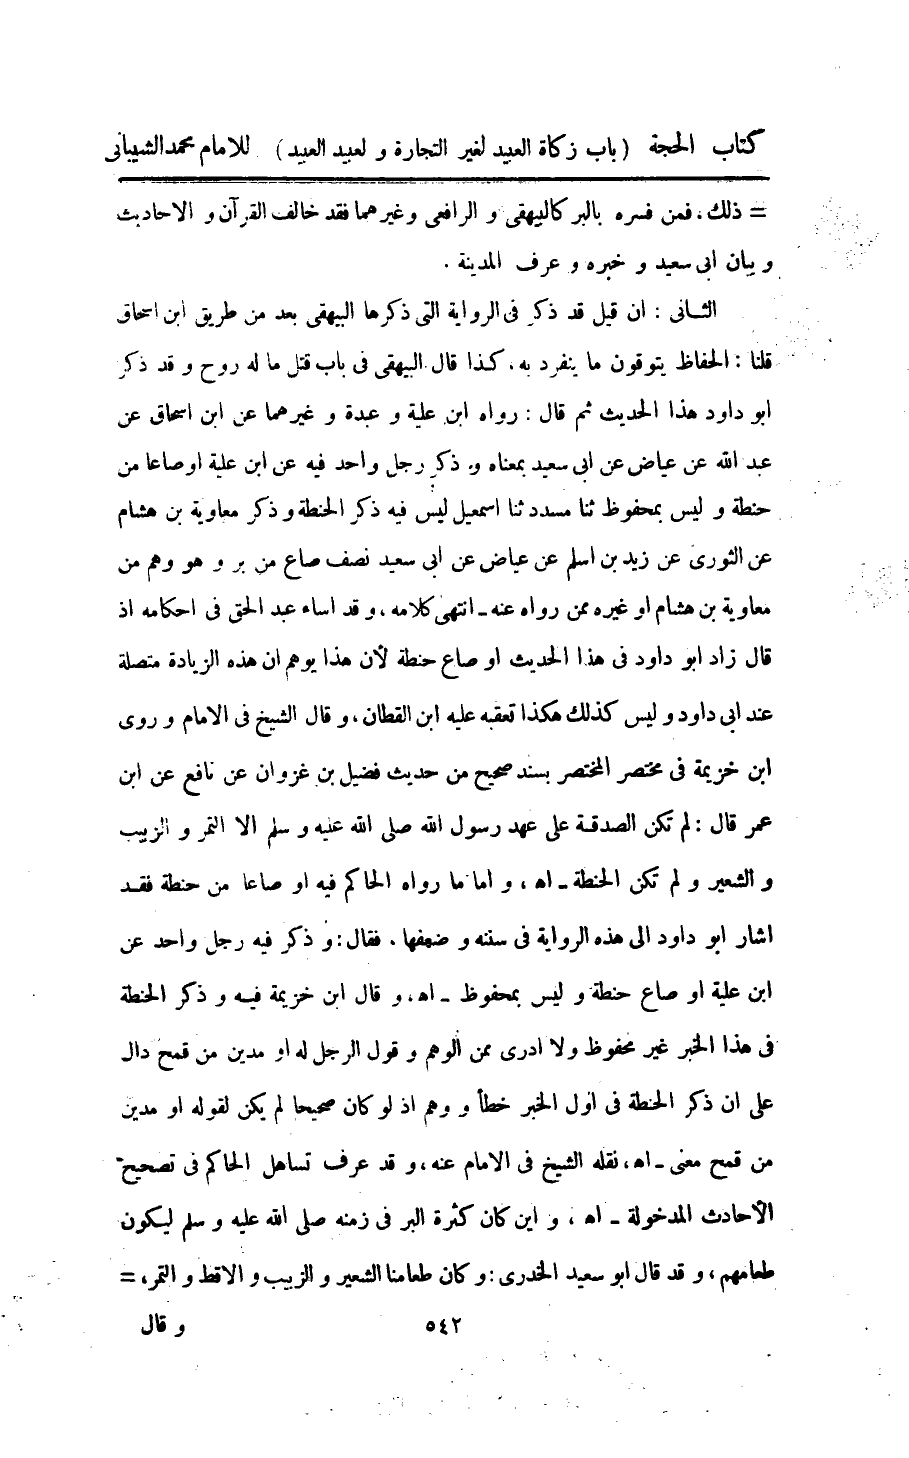 كتاب الحجة (باب زكاة العبيد لغير التجارة و لعبيد العبيد) للامام محمد الشيبانى
= ذلك، فمن فسره بالبر كالبيهقى و الرافعى وغيرهما فقد خالف القرآن و الاحاديث
و بيان ابى سعيد و خبره و عرف المدينة .
الثانى : ان قيل قد ذكر فى الرواية التى ذكرها البيهقى بعد من طريق ابن اسحاق
قلنا : الحفاظ يتوقون ما ينفرد به، كذا قال البيهقى فى باب قتل ما له روح و قد ذكر
ابو داود هذا الحديث ثم قال : رواه ابن علية و عبدة و غيرهما عن ابن اسحاق عن
عبد الله عن عياض عن ابى سعيد بمعناه و ذكر رجل واحد فيه عن ابن علية اوصاعا من
حنطة و ليس بمحفوظ ثنا مسدد ثنا اسمعيل ليس فيه ذكر الحنطة و ذكر معاوية بن هشام
عن الثورى عن زيد بن اسلم عن عياض عن ابى سعيد نصف صاع من بر و هو وهم من
معاوية بن هشام او غيره ممن رواه عنه ـ انتهى كلامه، و قد اساء عبد الحق فى احكامه اذ
قال زاد ابو داود فى هذا الحديث او صاع حنطة لأن هذا يوهم ان هذه الزيادة متصلة
عند ابى داود و ليس كذلك هكذا تعقبه عليه ابن القطان، و قال الشيخ فى الامام و روى
ابن خزيمة فى مختصر المختصر بسند صحيح من حديث فضيل بن غزوان عن نافع عن ابن
عمر قال : لم تكن الصدقة على عهد رسول الله صلى الله عليه و سلم الا التمر و الزبيب
و الشعير و لم تكن الحنطة ـ اه ، و اما ما رواه الحاكم فيه او صاعا من حنطة فقد
اشار ابو داود الى هذه الرواية فى سننه و ضعفها . فقال : و ذكر فيه رجل واحد عن
ابن علية او صاع حنطة و ليس بمحفوظ ـ اه، و قال ابن خزيمة فيه و ذكر الحنطة
فى هذا الخبر غير محفوظ ولا ادرى ممن الوهم و قول الرجل له او مدين من قمح دال
على ان ذكر الحنطة فى اول الخبر خطأ و وهم اذ لو كان صحيحا لم يكن لقوله او مدين
من قمح معنى ـ اه، نقله الشيخ فى الامام عنه، و قد عرف تساهل الحاكم فى تصحيح
الأحادث المدخولة ـ اه ، و اين كان كثرة البر فى زمنه صلى الله عليه و سلم ليكون
طعامهم، و قد قال ابو سعيد الخدرى : و كان طعامنا الشعير و الزبيب و الاقط و التمر، =
٥٤٢ و قال